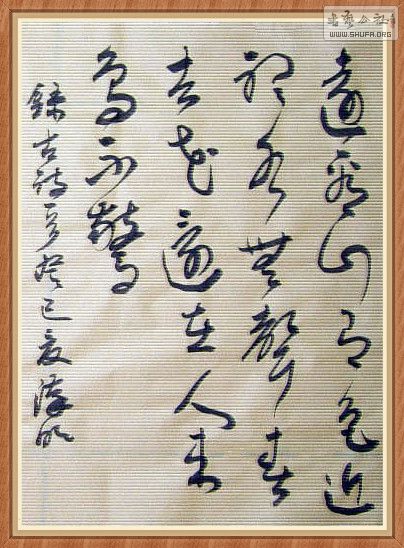 遠看山有色近
聽水無聲春
去花還在人來
鳥不驚
錄古詩一首癸巳夏
书艺公社
WWW.SHUFA.ORG